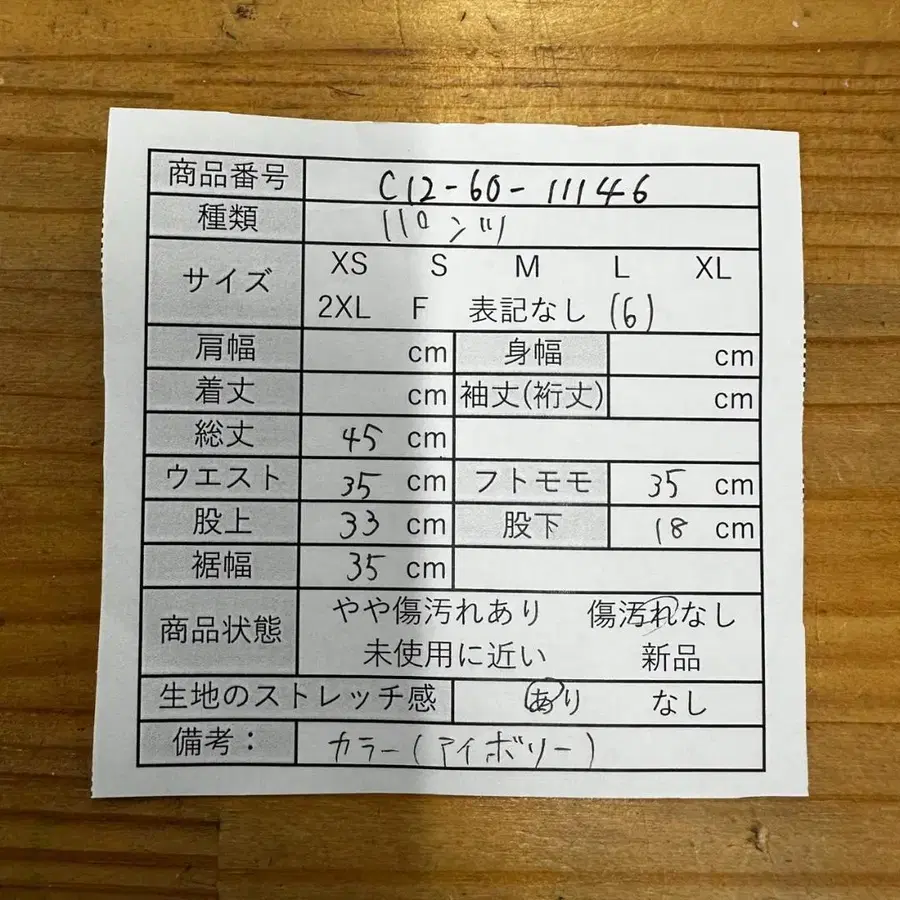 商品番号 C12-60-11146
種類 パンツ
サイズ XS S M L XL
2XL F 表記なし (6)
肩幅 cm 身幅 cm
着丈 cm 袖丈(裄丈) cm
総丈 45 cm
ウエスト 35 cm フトモモ 35 cm
股上 33 cm 股下 18 cm
裾幅 35 cm
商品状態 やや傷汚れあり 傷汚れなし
未使用に近い 新品
生地のストレッチ感 あり なし
備考: カラー(アイボリー)